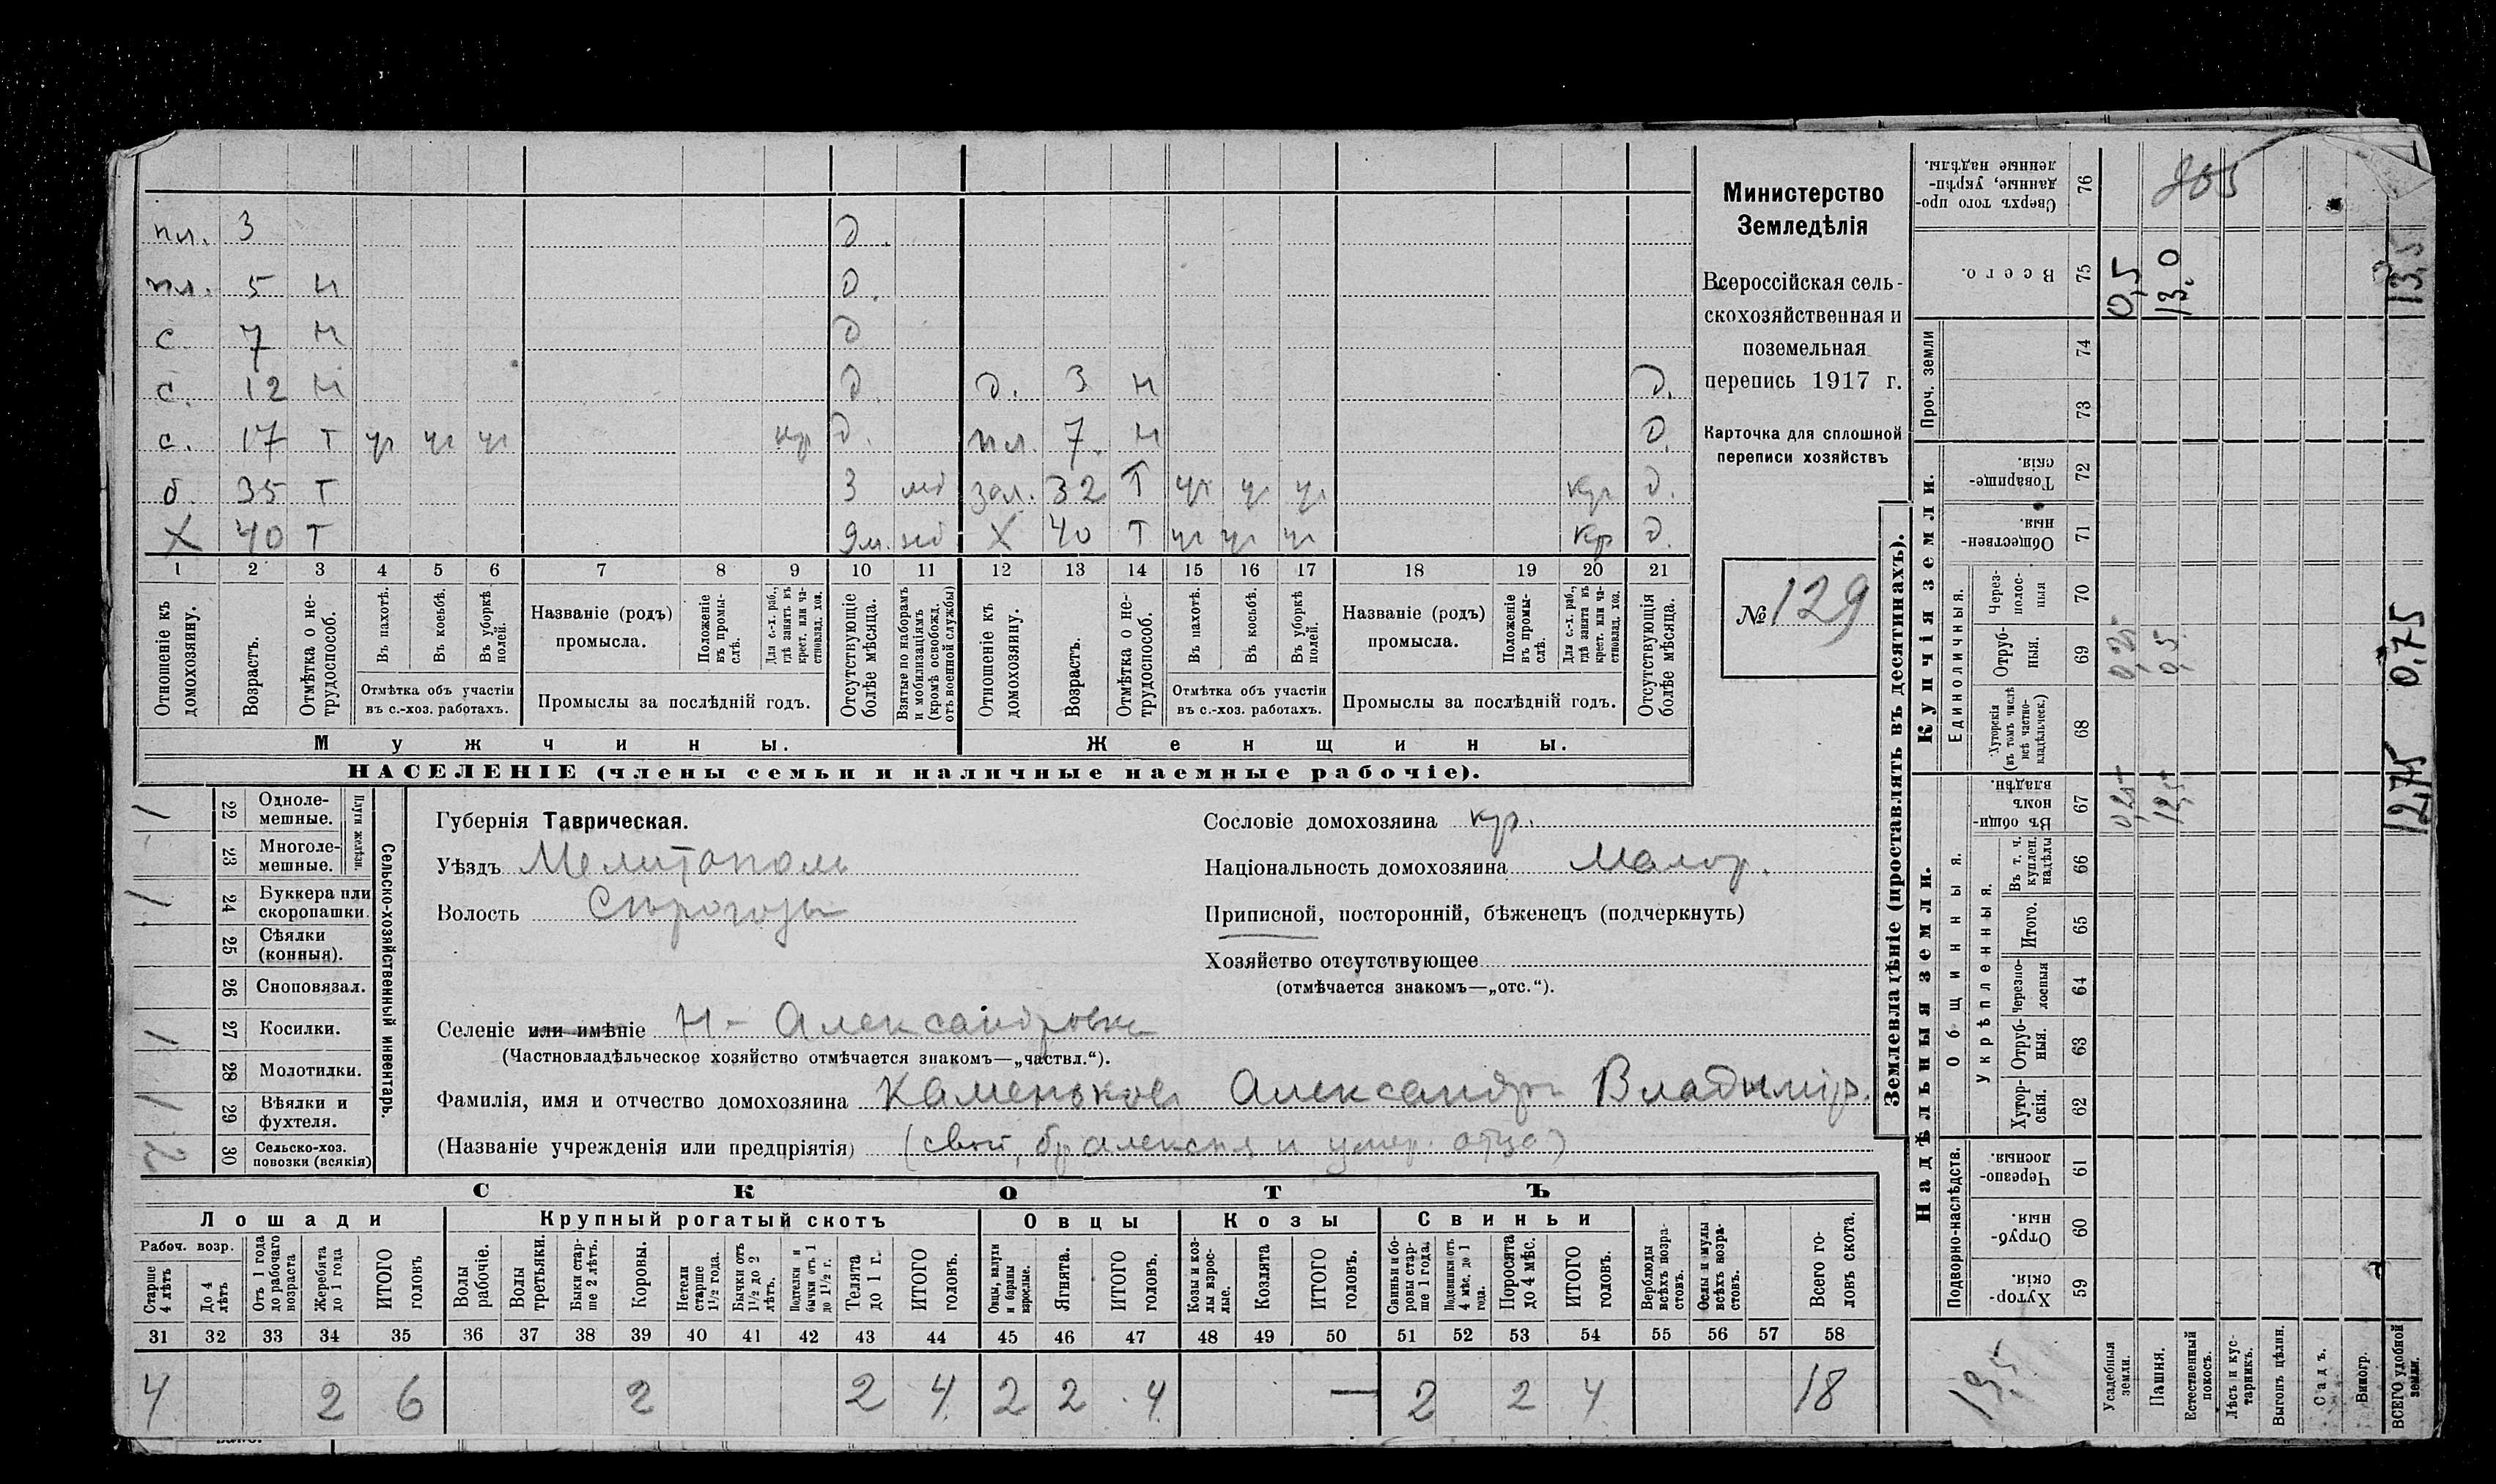 пл. 3 д.
пл. 5 н д.
с 7 н д
с. 12 н д. д. 3 н д.
с. 17 т уч уч уч кр д. пл. 7. н д.
б. 35 т 3 мб зол. 32 т уч уч уч кр д.
X 40 т 9м. мб X 40 т уч уч уч кр д.
1 2 3 4 5 6 7 8 9 10 11 12 13 14 15 16 17 18 19 20 21
Отношеніе къ домохозяину.
Возрастъ.
Отмѣтка о не-трудоспособ.
Въ пахотѣ.
Въ косьбѣ.
Въ уборкѣ полей.
Отмѣтка объ участіи
въ с.-хоз. работахъ.
Названіе (родъ)
промысла.
Положеніе въ промы-слѣ.
Для с.-х. раб., гдѣ занятъ въ крест. или ча-стновлад. хоз.
Промыслы за послѣдній годъ.
Отсутствующіе болѣе мѣсяца.
Взятые по наборамъ и мобилизаціямъ (кромѣ освобожд. отъ военной службы)
Отношеніе къ домохозяину.
Возрастъ.
Отмѣтка о не-трудоспособ.
Въ пахотѣ.
Въ косьбѣ.
Въ уборкѣ полей.
Отмѣтка объ участіи
въ с.-хоз. работахъ.
Названіе (родъ)
промысла.
Положеніе въ промы-слѣ.
Для с.-х. раб., гдѣ занята въ крест. или ча-стновлад. хоз.
Промыслы за послѣдній годъ.
Отсутствующія болѣе мѣсяца.
Мужчины.
Женщины.
НАСЕЛЕНІЕ (члены семьи и наличные наемные рабочіе).
Министерство
Земледѣлія
Всероссійская сель-
скохозяйственная и
поземельная
перепись 1917 г.
Карточка для сплошной
переписи хозяйствъ
№ 129
Сельско-хозяйственный инвентарь.
Плуги желѣзн.
22 Одноле-мешные. 1
23 Многоле-мешные.
24 Буккера или скоропашки. 1
25 Сѣялки (конныя).
26 Сноповязал.
27 Косилки. 1
28 Молотилки.
29 Вѣялки и фухтеля. 1
30 Сельско-хоз. повозки (всякія) 2
Губернія Таврическая.
Уѣздъ Мелитополь
Волость Сѣрогозы
Сословіе домохозяина кр.
Національность домохозяина Малор.
Приписной, посторонній, бѣженецъ (подчеркнуть)
Хозяйство отсутствующее
(отмѣчается знакомъ—„отс.“).
Селеніе или имѣніе Н-Александровка
(Частновладѣльческое хозяйство отмѣчается знакомъ—„частвл.“).
Фамилія, имя и отчество домохозяина Каменьков Александр Владимір.
(Названіе учрежденія или предпріятія) (свой, бр Алексея и умер. отца)
СКОТЪ
Лошади
Крупный рогатый скотъ
Овцы
Козы
Свиньи
Рабоч. возр.
Старше 4 лѣтъ
До 4 лѣтъ
Отъ 1 года до рабочаго возраста
Жеребята до 1 года
ИТОГО головъ
Волы рабочіе.
Волы третьяки.
Быки стар-ше 2 лѣтъ.
Коровы.
Нетели старше 1½ года.
Бычки отъ 1½ до 2 лѣтъ.
Подтелки и бычки отъ 1 до 1½ г.
Телята до 1 г.
ИТОГО головъ.
Овцы, валухи и бараны взрослые.
Ягнята.
ИТОГО головъ.
Козы и коз-лы взрос-лые.
Козлята
ИТОГО головъ.
Свиньи и бо-ровы стар-ше 1 года.
Подсвинки отъ 4 мѣс. до 1 года.
Поросята до 4 мѣс.
ИТОГО головъ.
Верблюды всѣхъ возра-стовъ.
Ослы и мулы всѣхъ возра-стовъ.
Всего го-ловъ скота.
31 32 33 34 35 36 37 38 39 40 41 42 43 44 45 46 47 48 49 50 51 52 53 54 55 56 57 58
4 2 6 2 2 4 2 2 4 — 2 2 4 18
Землевладѣніе (проставлять въ десятинахъ).
Надѣльныя земли.
Купчія земли.
Проч. земли
Подворно-наслѣдств.
Общинныя.
Укрѣпленныя.
Единоличныя.
Сверхъ того про-данные, укрѣп-ленные надѣлы. 76 865
Всего. 75 0,5 13,0 13,5
74
73
Товарище-скія. 72
Обществен-ныя. 71
Через-полос-ныя 70
Отруб-ныя. 69 0,25 0,5 0,75
Хуторскія (въ томъ числѣ всѣ частно-владѣльческ.) 68
Въ общин-номъ владѣн. 67 0,25 12,5 12,75
Въ т. ч. куплен. надѣлы 66
Итого. 65
Черезпо-лосныя 64
Отруб-ныя. 63
Хутор-скія. 62
Черезпо-лосныя. 61
Отруб-ныя. 60
Хутор-скія. 59
13,5
Усадебныя земли.
Пашня.
Естественный покосъ.
Лѣсъ и кус-тарникъ.
Выгонъ цѣлин.
Садъ.
Виногр.
ВСЕГО удобной земли.